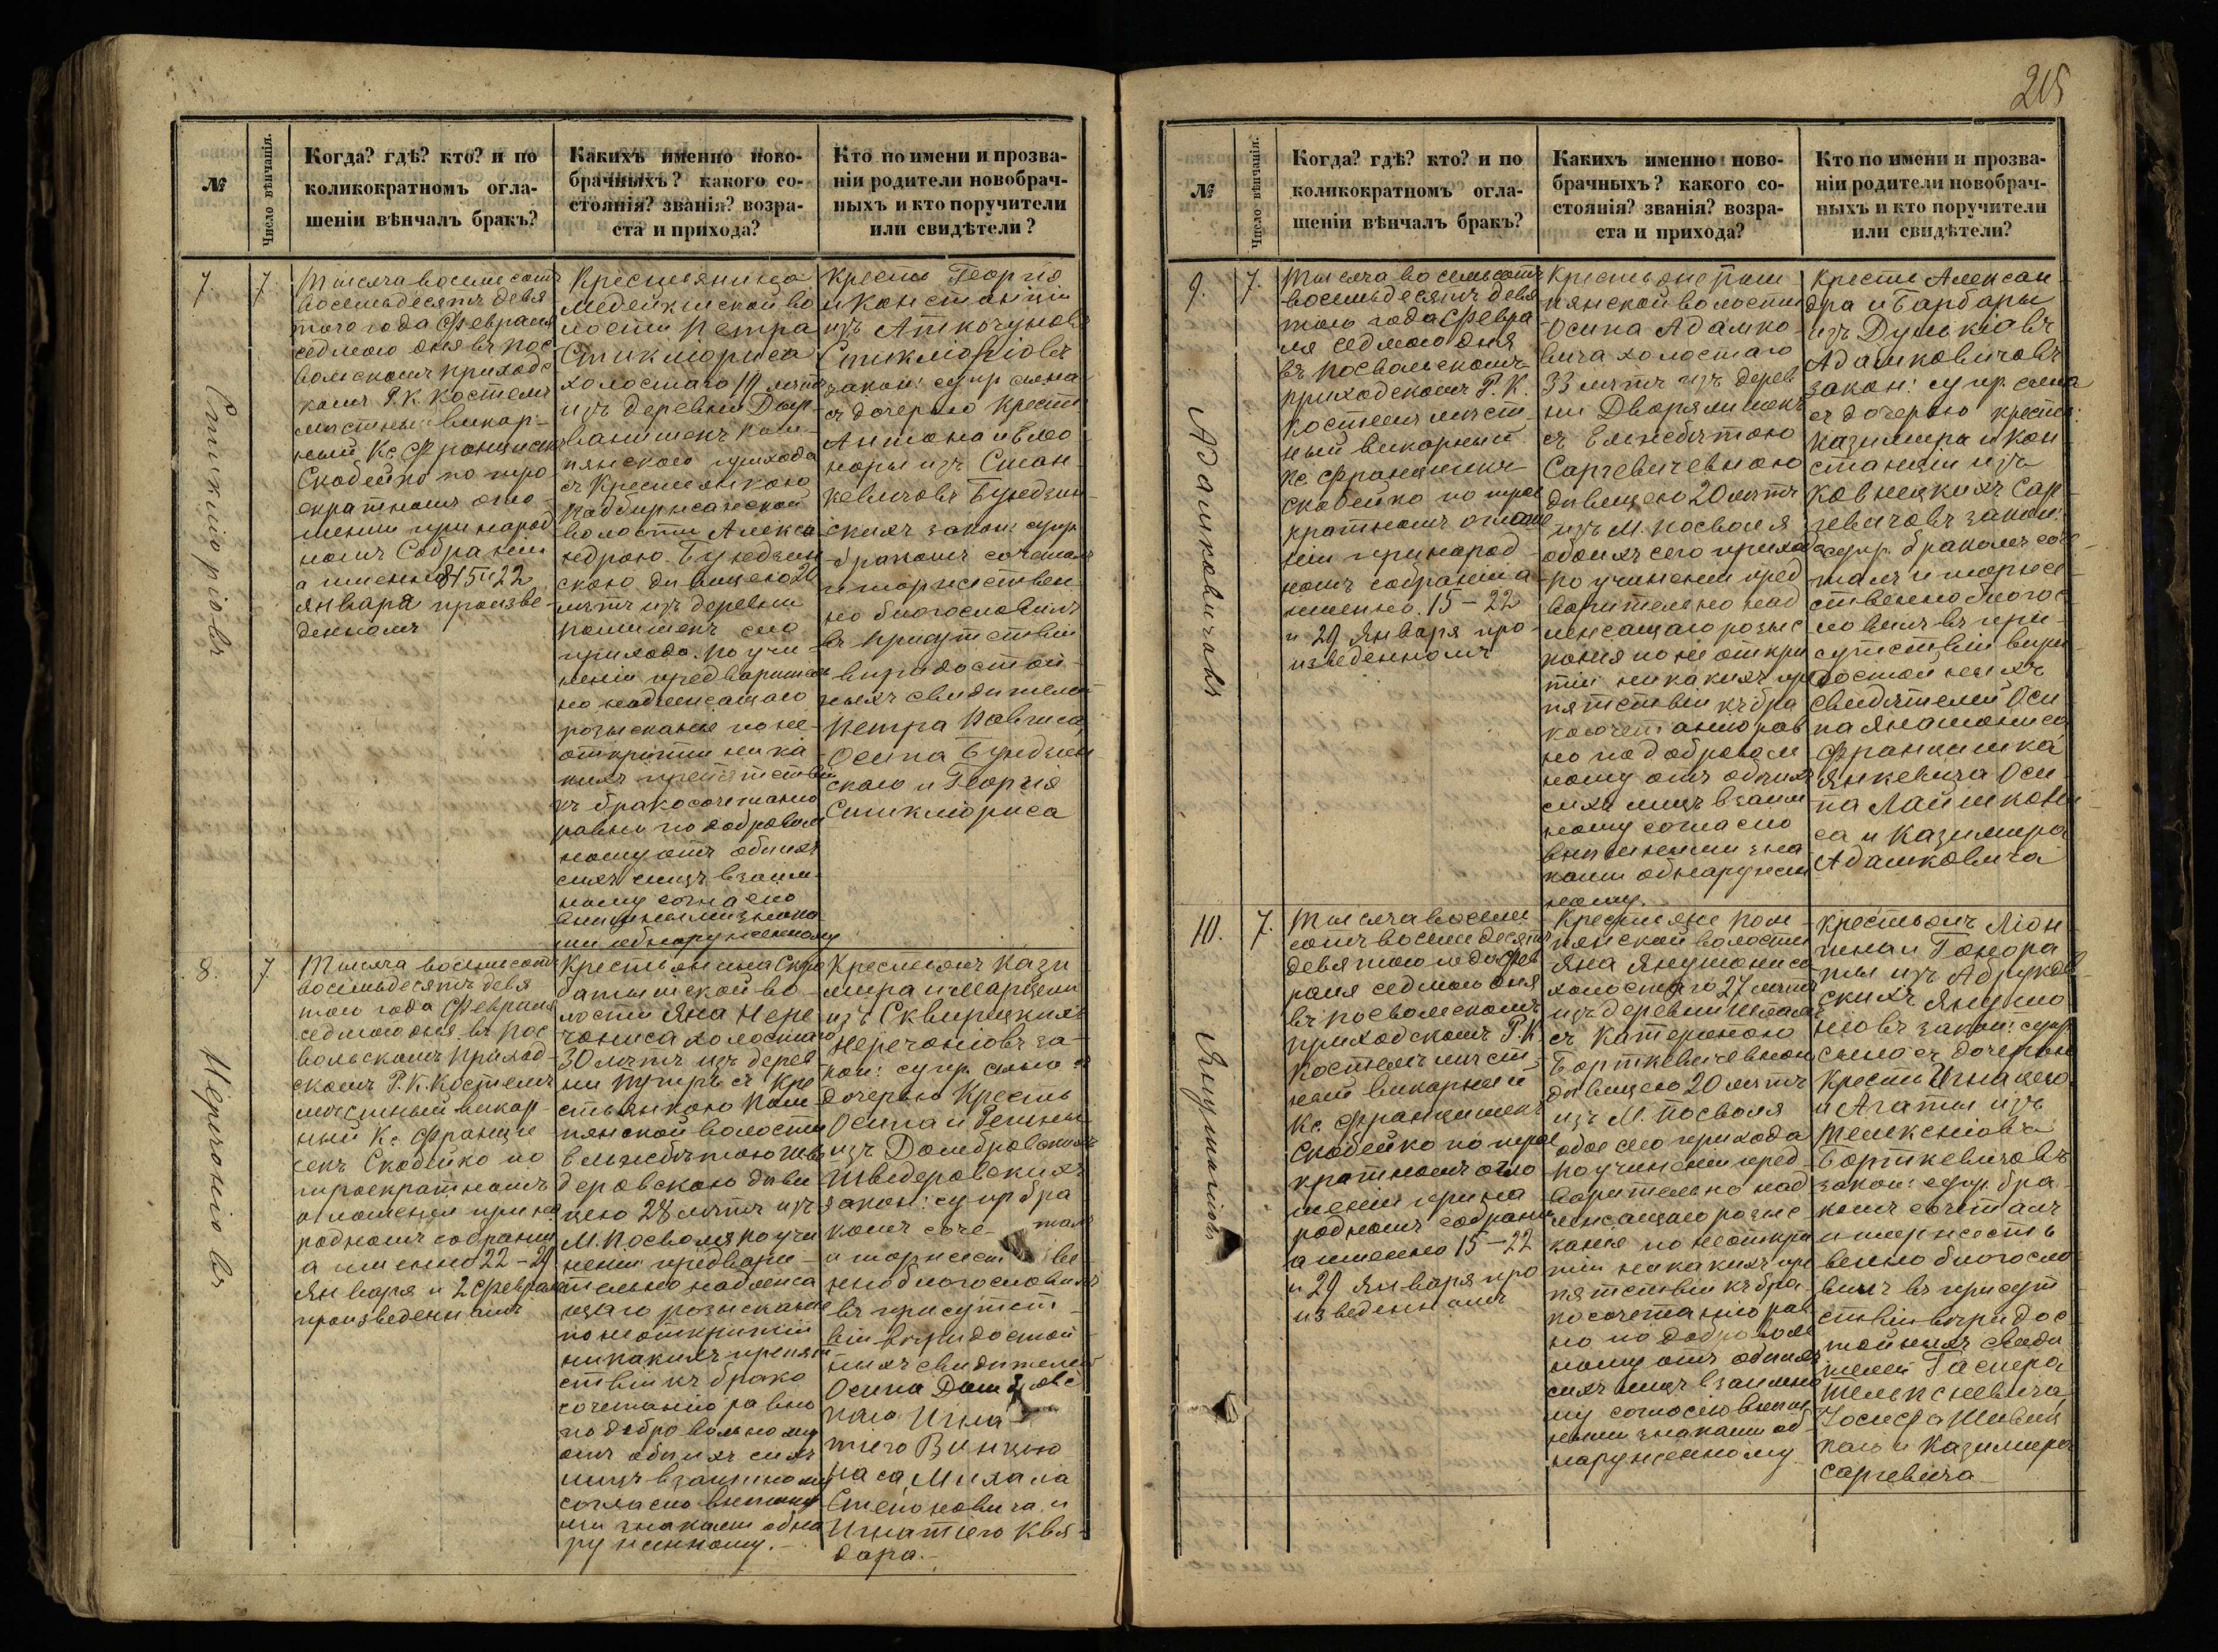 №
Число вѣнчанія.
Когда? гдѣ? кто? и по
коликократномъ огла-
шеніи вѣнчалъ бракъ?
Какихъ именно ново-
брачныхъ? какого со-
стоянія? званія? возра-
ста и прихода?
Кто по имени и прозва-
ніи родители новобрач-
ныхъ и кто поручители
или свидѣтели?
7.
7
Стиклюріовъ
Тысяча восемьсотъ
восемьдесятъ девя
таго года Февраля
седмого дня въ Пос
вольскомъ приходс
комъ Р. К. Костелѣ
мѣстный викар-
ный Кс Францишекъ
Скобейко по тро
екратномъ огла-
шеніи при народ
номъ Собраніи
а именно 8 15 и 22
Января произве-
денномъ
Крестьянина
Медейкишской во
лости Петра
Стиклюриса
холостаго 19 лѣтъ
изъ деревни
ванишекъ Пом-
пянского прихода
съ Крестьянкою
волости Алекса
ндрою Буйдзин
скою дѣвицею 20
лѣтъ изъ деревни
сего
прихода. По учи-
неніи предварительно
надлежащаго
розысканія по не-
открытіи ника
кихъ препятствій
къ бракосочетанію
равно по добровол
ному отъ обоихъ
сихъ лицъ взаим
ному согласію
внѣшными знака
ми обнаруженному
Крестьянъ Георгія
и Констанціи
изъ Аткочуновъ
Стиклюріовъ
закон: супр сына
съ дочерью Крестьянъ
Антона и Элео
норы изъ Стан-
кевичовъ Буйдзин
скихъ закон: супр.
бракомъ сочеталъ
и торжествен
но благословилъ
въ присутствіи
вѣридостой-
ныхъ свидѣтелей
Петра Повлиса,
Осипа Буйдзин
скаго и Георгія
Стиклюриса
8.
7
Нерчоніовъ
Тысяча восемьсотъ
восемьдесятъ девя
таго года Февраля
седмаго дня въ Пос
вольскомъ приход-
скомъ Р. К. Костелѣ
мѣстный викар
ный Кс Франци
шекъ Скобейко по
троекратномъ
оглашеніи при на
родномъ собраніи
а именно 22-29
Января и 2 Февраля
произведенномъ
Крестьянина Скро
батышской во-
лости Яна Нере
чониса холостаго
30 лѣтъ изъ дерев
ни съ Кре
стьянкою Пом-
пянской волости
Эльжбѣтою Шве
деровскою дѣви
цею 28 лѣтъ изъ
М. Посволя по учи
неніи предвари-
тельно надлежа
щаго розысканія
по неоткрытіи
никакихъ препят
ствій къ брако
сочетанію равно
по добровольному
отъ обоихъ сихъ
лицъ взаимному
согласію внѣшны
ми знаками обна
руженному.-
Крестьянъ Кази
мира и Марцели
изъ Сквирецкихъ
Неречоніовъ за-
кон: супр. сына съ
дочерью Крестьянъ
Осипа и
изъ Домбровскихъ
Шведеровскихъ
закон: супр бра
комъ соче- талъ
и торжест ве
нно благословилъ
въ присутст-
віи вѣридостой
ныхъ свидѣтелей
Осипа Дом вс
каго Игна
тіего Винцю
наса, Михала
Степоновича и
Игнатіего Квя-
дара.-
215
№
Число вѣнчанія.
Когда? гдѣ? кто? и по
коликократномъ огла-
шеніи вѣнчалъ бракъ?
Какихъ именно ново-
брачныхъ? какого со-
стоянія? званія? возра-
ста и прихода?
Кто по имени и прозва-
ніи родители новобрач-
ныхъ и кто поручители
или свидѣтели?
9.
7.
Адамковичовъ
Тысяча восемьсотъ
восемьдесятъ девя
таго года Февра-
ля седмого дня
въ Посвольскомъ
приходскомъ Р. К.
Костелѣ мѣст
ный викарный
Кс Францишекъ
Скобейко по трое
кратномъ оглаше
ніи при народ-
номъ собраніи а
именно 15-22
и 29 Января про-
изведенномъ
Крестьяне Помп
пянской волости
Осипа Адамко-
вича холостаго
33 лѣтъ изъ дерев
ни Дворялишекъ
съ Эльжбѣтою
Саргевичевною
дѣвицею 20 лѣтъ
изъ М. Посволя
обоихъ сего прихода
по учиненіи пред
варительно над
лежащаго розыс
канія по не откры
тіи никакихъ пре
пятствій къ бра
косочетанію рав
но по добровол
ному отъ обоихъ
сихъ лицъ взаим
ному согласію
внѣшними зна
ками обнаружен
ному.
Крестьянъ Алексан
дра и Барбары
изъ Дулькіовъ
Адамковичовъ
закон: супр. сына
съ дочерью крестьянъ
Казимира и Кон
станціи изъ
Ковнецкихъ Сар
гевичовъ закон:
супр. бракомъ соче
талъ и торже
ственно благос
ловилъ въ при-
сутствіи вѣри
достойныхъ
свидѣтелей Оси
па Янашониса
Францишка
Янкевича Оси
па
са и Казимира
Адамковича
10.
7.
Янушоніовъ
Тысяча восемь
сотъ восемьдесятъ
девятого года Фев
раля седмого дня
въ Посвольскомъ
приходскомъ Р. К
Костелѣ мѣст
ный викарный
Кс. Францишекъ
Скобейко по трое
кратномъ огло
шеніи при на
родномъ собраніи
а именно 15-22
и 29 Января про
изведенномъ
Крестьяне Пом-
пянской волости
Яна Янушониса
холостаго 27 лѣтъ
изъ деревни
съ Катериною
Борткевичевною
дѣвицею 20 лѣтъ
изъ М. Посволя
обое сего прихода
по учиненіи пред-
варительно над
лежащаго розыс
канія по неоткры
тіи никакихъ пре
пятствій къ бра
косочетанію рав
но по доброволь
ному отъ обоихъ
сихъ лицъ взаимно
му согласію внѣш
ными знаками об-
наруженному
Крестьянъ
и Гонора
ты изъ
скихъ Янушо
ніовъ закон: супр
сына съ дочерью
Крестьянъ Игнацего
и Агаты изъ
Телексніовъ
Борткевичовъ
закон: супр. бра
комъ сочеталъ
и торжеств
венно благосло
вилъ въ присут
ствіи вѣридос-
тойныхъ свидѣ
телей Гаспера
Телексневича,
Іосифа
каго и Казимира
Саргевича